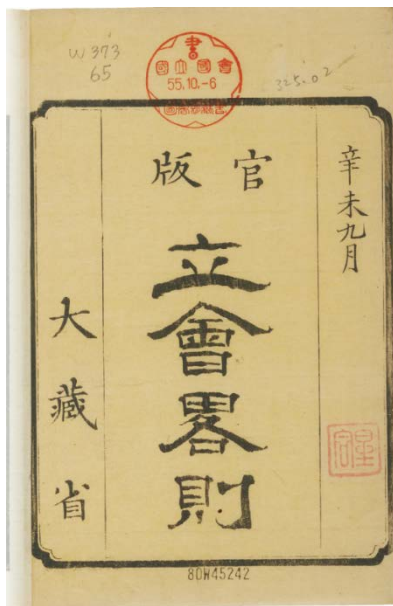 W373
65
書
國立國會
55.10.-6
325.02
辛未九月
官版
立會畧則
大藏省
80W45242